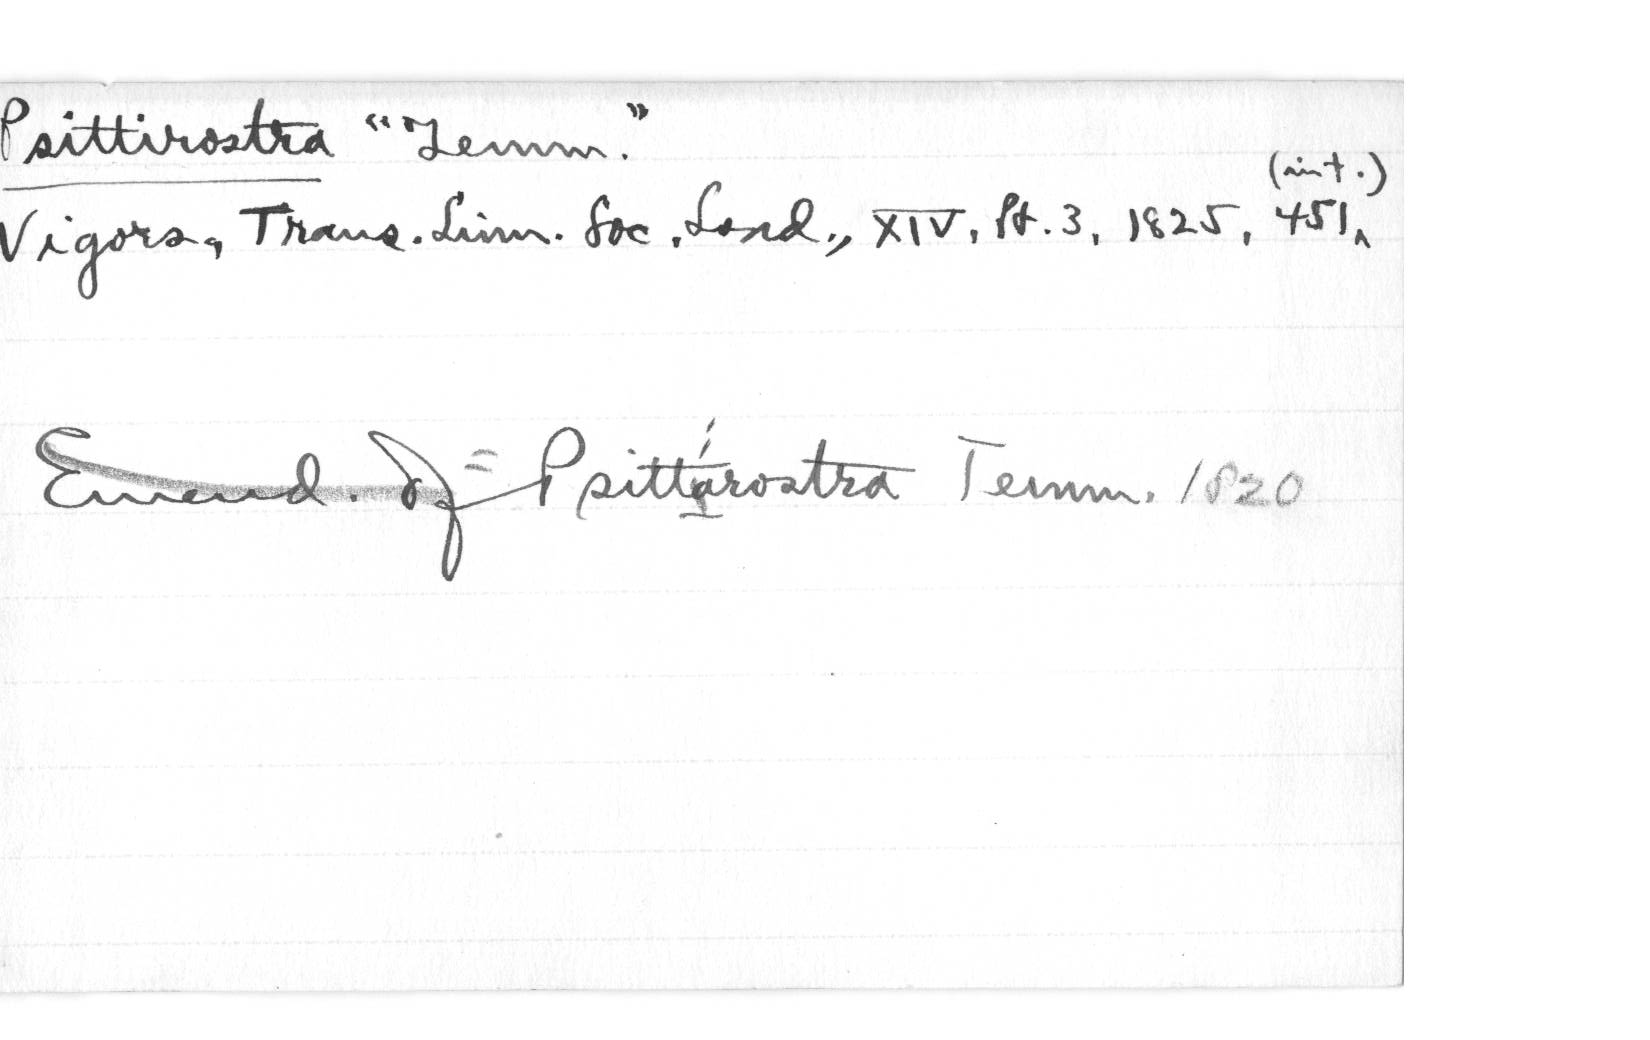 Psittirostra "Temm."
Vigors, Trans. Linn. Soc. Lond., XIV, Pt. 3, 1825, 451, (int.)
Emend. of = Psittirostra Temm. 1820